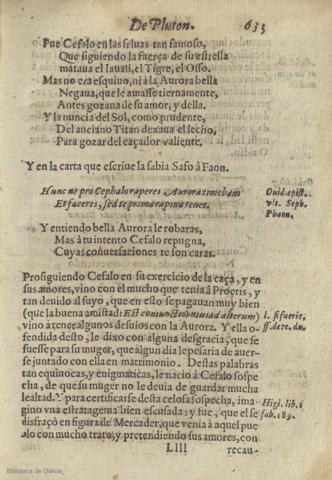 De Pluton. 635
Fue Cefalo en las seluas tan famoso,
Que siguiendo la fuerça de su estrella
mataua el Iauali, el Tigre, el Osso.
Mas no era esquiuo, ni à la Aurora bella
Negaua, que le amasse tiernamente,
Antes gozaua de su amor, y della.
Y la nuncia del Sol, como prudente,
Del anciano Titan dexaua el lecho,
Para gozar del caçador valiente.
Y en la carta que escriue la sabia Safo à Faon.
Hunc ne pro Cephalo raperes Aurora timebam
Et faceres, sed te prima rapina tenet.
Ouid. epist.
vlt. Saph.
Phaon.
Y entiendo bella Aurora le robaras,
Mas à tu intento Cefalo repugna,
Cuyas conuersaciones te son caras.
Prosiguiendo Cefalo en su exercicio de la caça, y en
sus amores, vino con el mucho que tenia à Procris, y
tan deuido al suyo, que en esto se pagauan muy bien
(que la buena amistad: Est coniunctio nius ad alterum)
vino à tener algunos desuios con la Aurora. Y ella o-
fendida desto, le dixo con alguna desgracia, que se
fuesse para su muger, que algun dia le pesaria de auer-
se juntado con ella en matrimonio. Destas palabras
tan equiuocas, y enigmaticas, le nacio à Cefalo sospe
cha, de que su muger no le deuia de guardar mucha
lealtad. Y para certificarse desta celosa sospecha, ima
gino vna estratagema bien escusada: y fue, que el se
disfraçò en figura de Mercader, que venia à aquel pue
blo con mucho trato, y pretendiendo sus amores, con
l. si fuerit,
ff. de re. du.
Higi. lib. i
fab. 189.
Llll
recau-
Biblioteca de Galicia